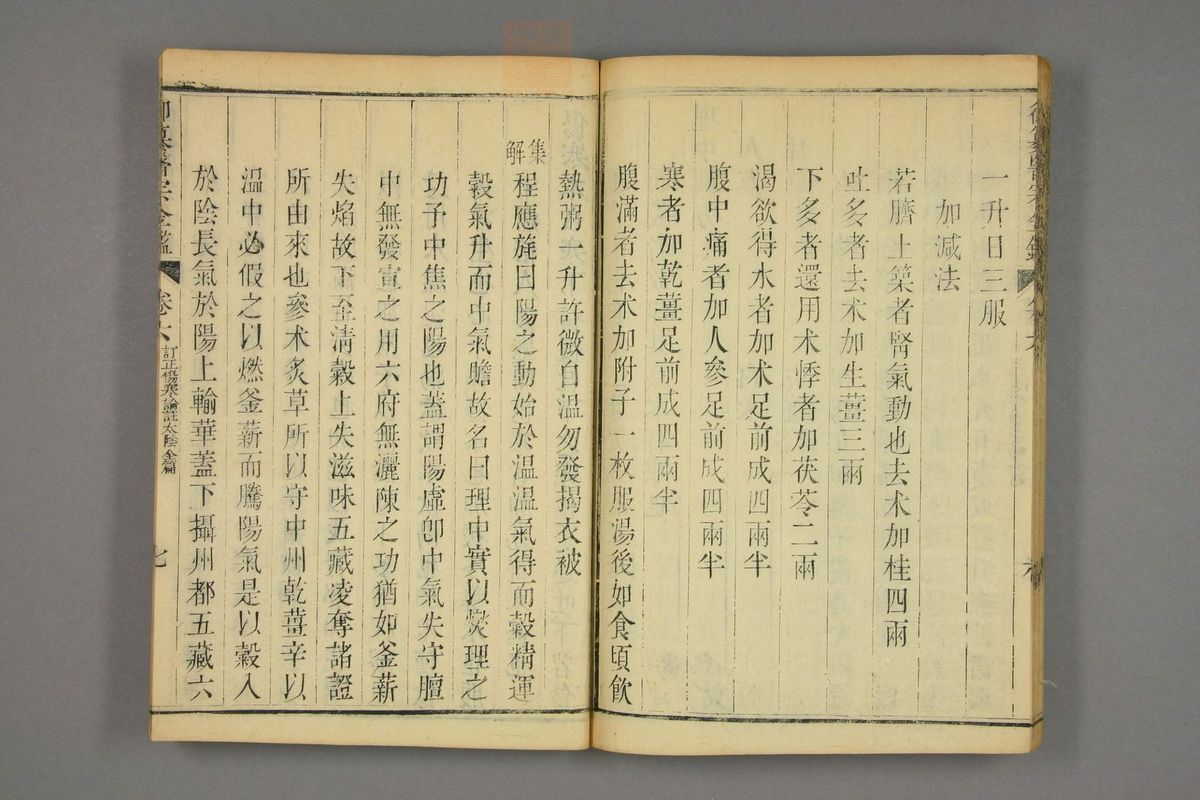 一升日三服
加減法
若臍上築者腎氣動也去术加桂四兩
吐多者去术加生薑三兩
下多者還用术悸者加茯苓二兩
渴欲得水者加术足前成四兩半
腹中痛者加人參足前成四兩半
寒者加乾薑足前成四兩半
腹滿者去术加附子一枚服湯後如食頃飲
熱粥一升許微自溫勿發揭衣被
集解
程應旄曰陽之動始於溫溫氣得而穀精運
穀氣升而中氣贍故名曰理中實以燮理之
功予中焦之陽也蓋謂陽虛卽中氣失守膻
中無發宣之用六府無灑陳之功猶如釜薪
失焰故下至淸穀上失滋味五藏凌奪諸證
所由來也參术炙草所以守中州乾薑辛以
溫中必假之以燃釜薪而騰陽氣是以穀入
於陰長氣於陽上輸華蓋下攝州都五藏六
御纂醫宗金鑑
卷六
訂正傷寒論註太陰全篇
七